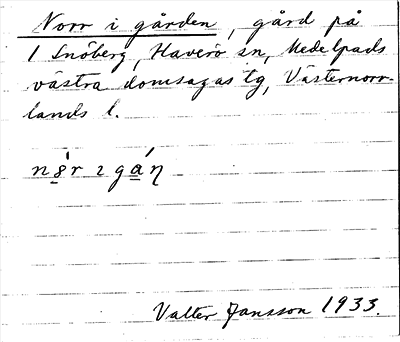 Norr i gården, gård på
1 Snöberg, Haverö sn, Medelpads
västra domsagas tg, Västernorr-
lands l.
Valter Jansson 1933.